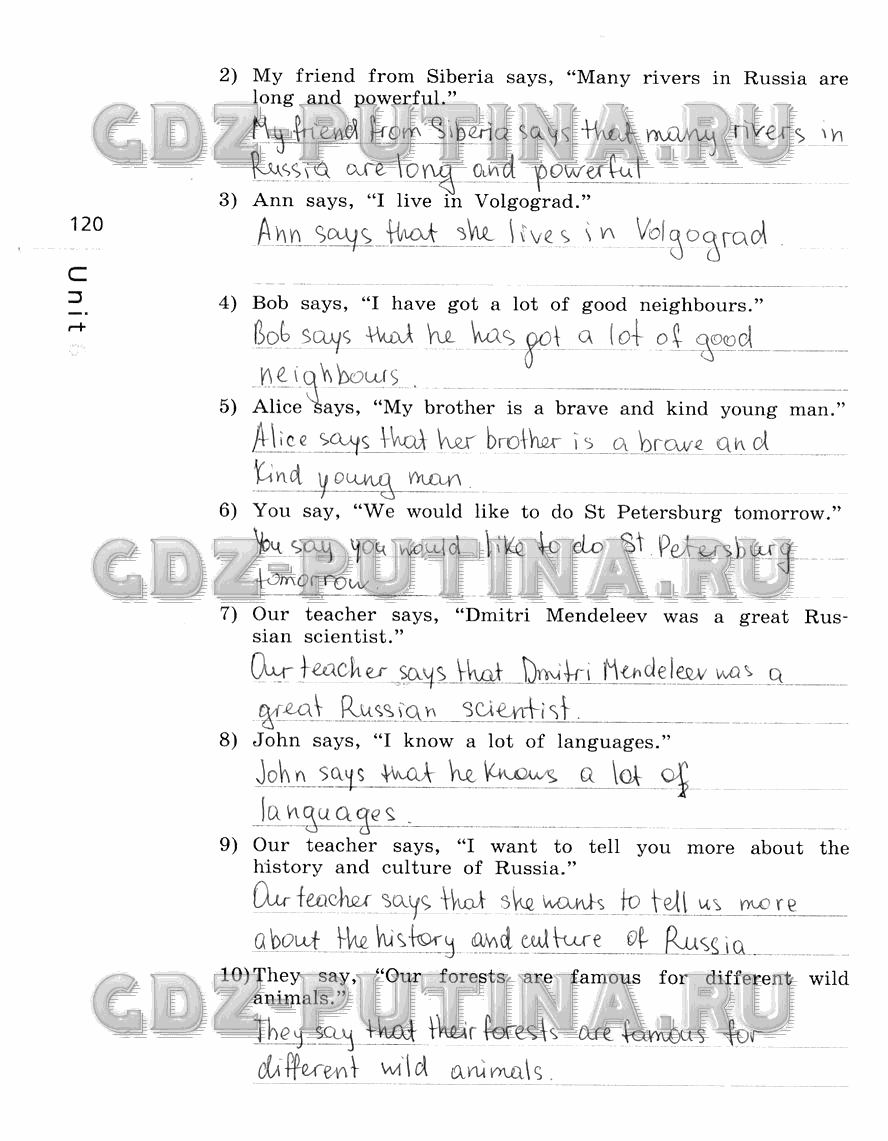 2) My friend from Siberia says, “Many rivers in Russia are
long and powerful.”
GDZ-PUTINA.RU
My friend from Siberia says that many rivers in
Russia are long and powerful
3) Ann says, “I live in Volgograd.”
120
Ann says that she lives in Volgograd.
Unit 6
4) Bob says, “I have got a lot of good neighbours.”
Bob says that he has got a lot of good
neighbours.
5) Alice says, “My brother is a brave and kind young man.”
Alice says that her brother is a brave and
kind young man.
6) You say, “We would like to do St Petersburg tomorrow.”
GDZ-PUTINA.RU
You say you would like to do St. Petersburg
tomorrow
7) Our teacher says, “Dmitri Mendeleev was a great Rus-
sian scientist.”
Our teacher says that Dmitri Mendeleev was a
great Russian scientist.
8) John says, “I know a lot of languages.”
John says that he knows a lot of
languages.
9) Our teacher says, “I want to tell you more about the
history and culture of Russia.”
Our teacher says that she wants to tell us more
about the history and culture of Russia.
10) They say, “Our forests are famous for different wild
animals.”
GDZ-PUTINA.RU
They say that their forests are famous for
different wild animals.